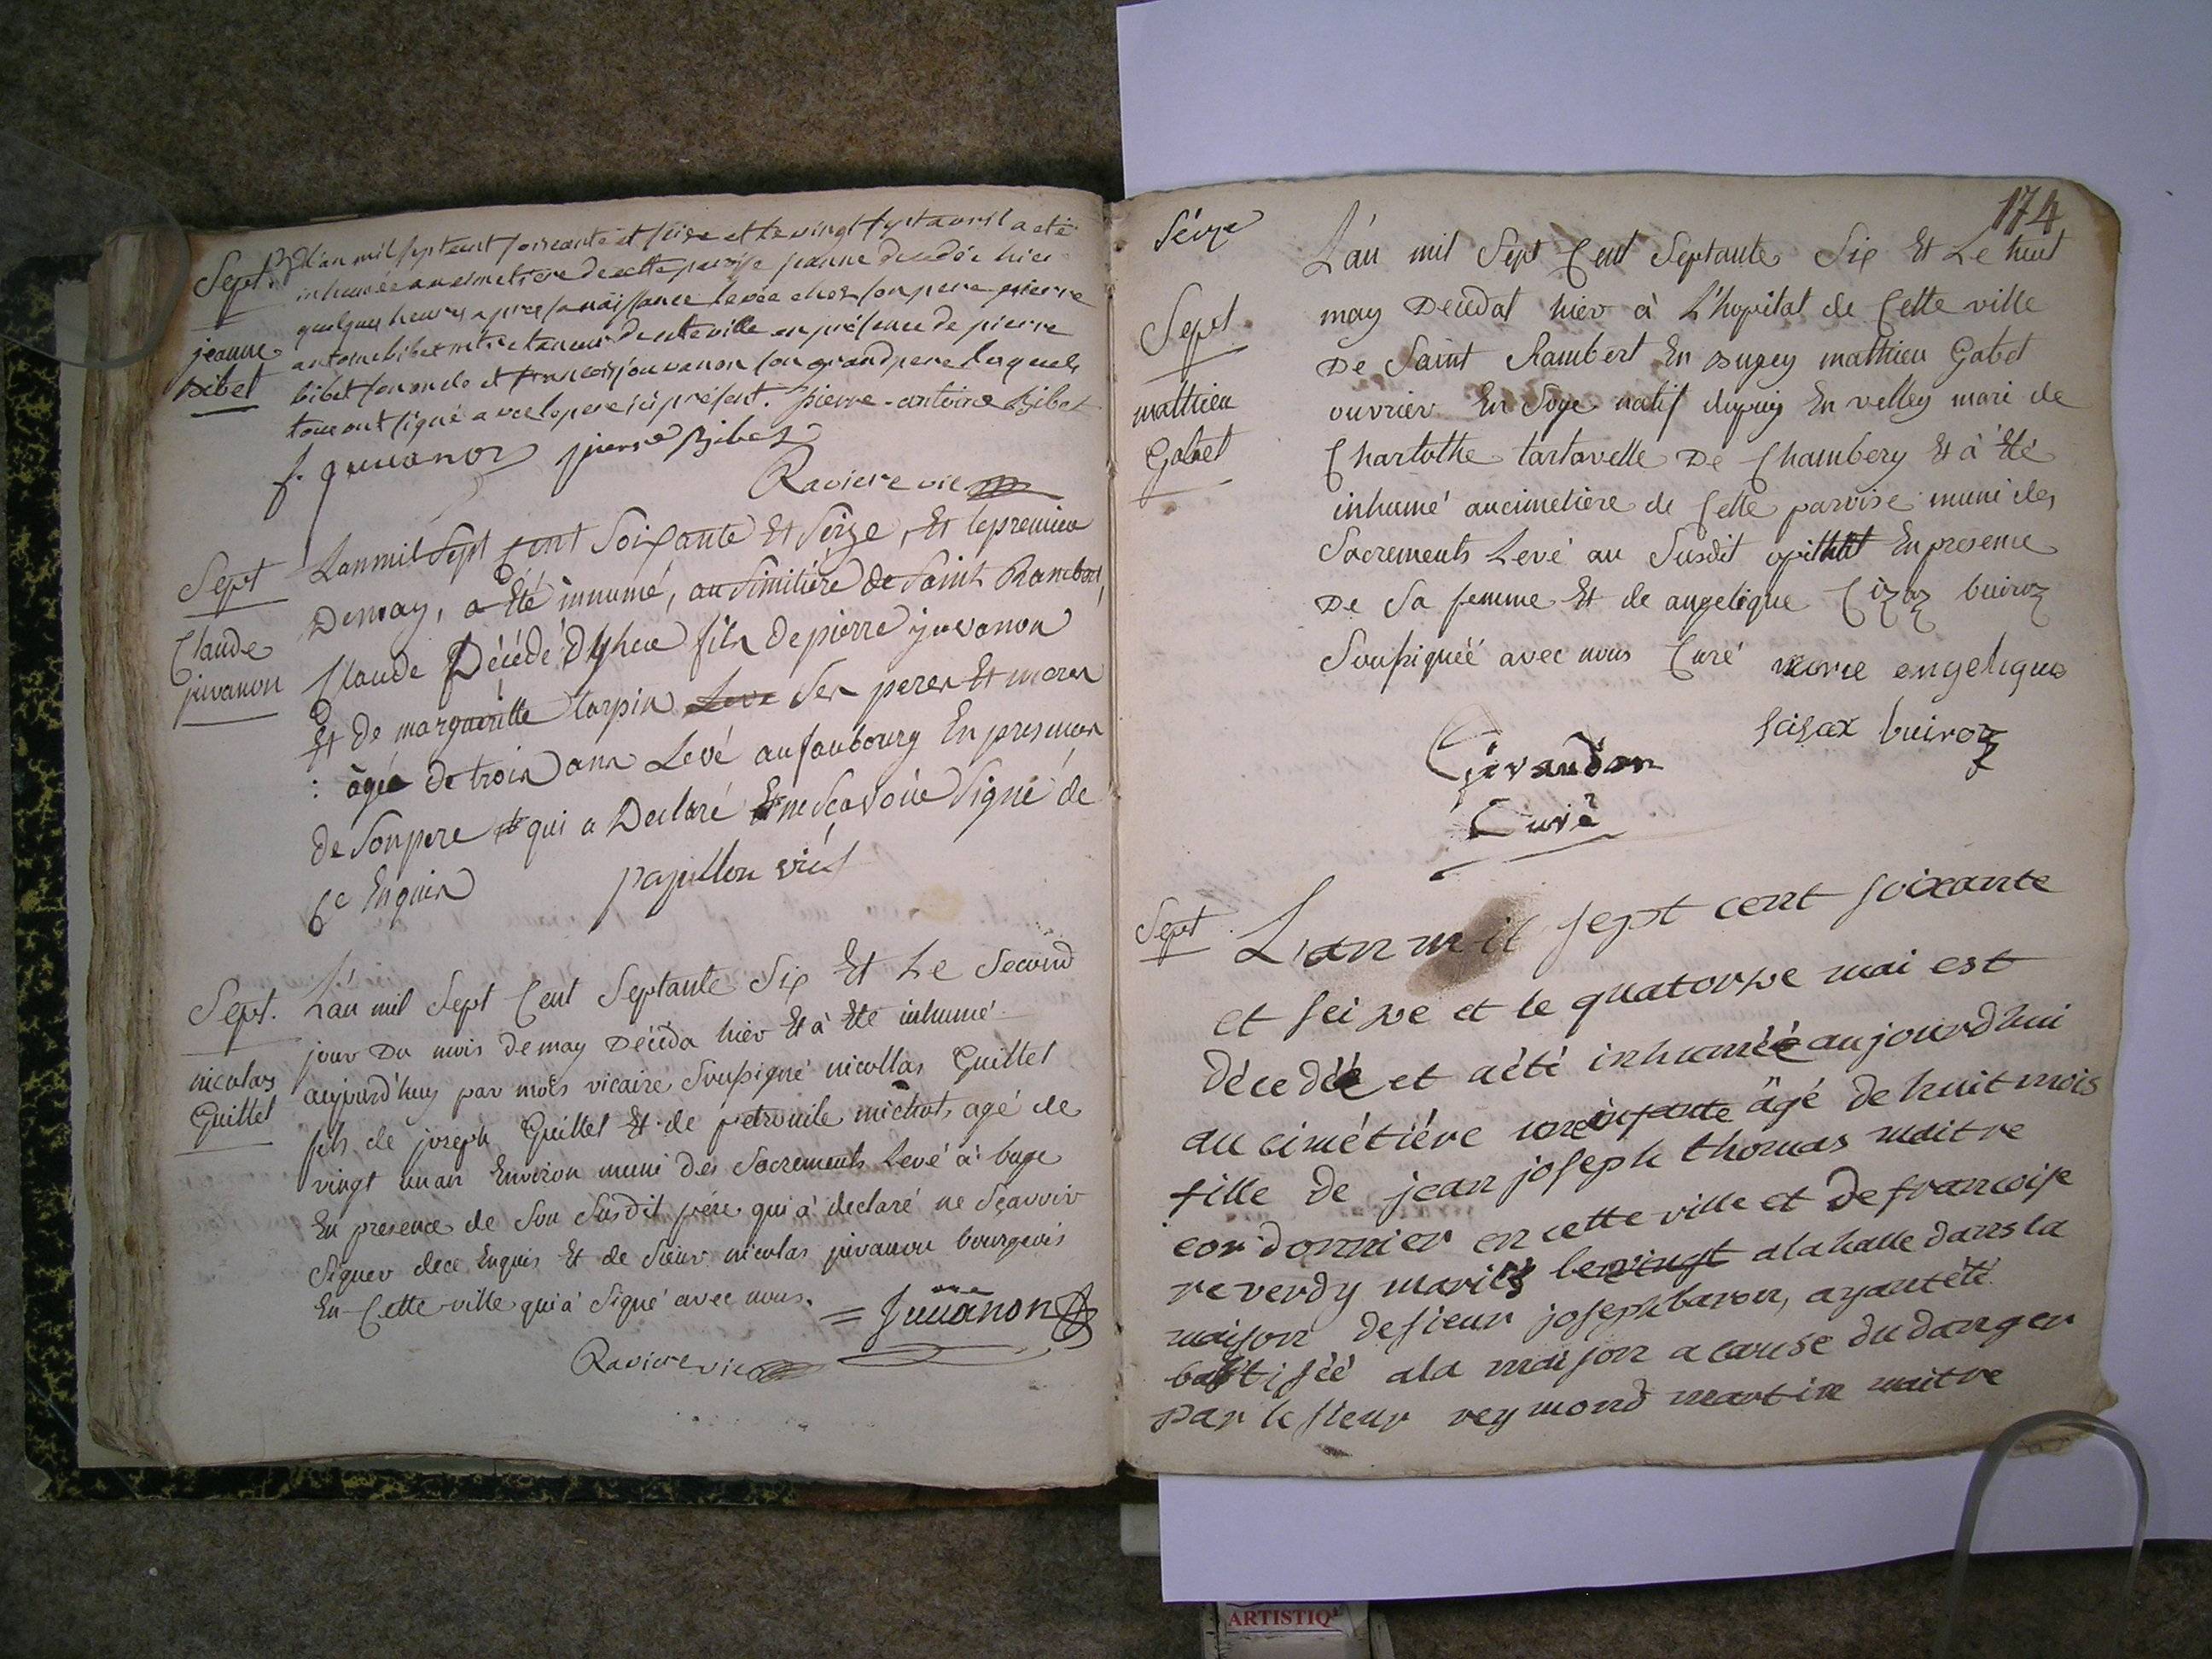 Sept.re
jeanne
bibet
L'an mil sept cent soixante et seize et le vingt sept avril a eté
inhumée au cimetiere de cette paroisse jeanne decedée hier
quelques heures apres sa naissance levée chez son pere pierre
antoine bibet mtre taneur de cette ville en présence de pierre
bibet son oncle et francois jouvanon son grand pere lesquels
tous ont signé avec le pere ici présent. pierre-antoine Bibet
f. juvanon pierre Bibet
Raviere vic
Sept
Claude
juvanon
L'an mil Sept Cent Soixante Et Seize, Et le premier
De may, a Eté innumé, au Simitiére de Saint Rambert,
Claude Décédé D'yhier fils de pierre juvanon
Et de marguerite tarpin Levé Ses peres Et meres
: agée de trois ans Levé au faubourg En presences
de Son pere qui a Declaré ne Scavoire Signé de
Ce Enquis papillon vic
Sept.
nicolas
Guillet
L'an mil Sept Cent Septante Six Et Le Second
jour Du mois de may Décéda hier Et à Eté inhumé
aujourd'huy par mois vicaire Soussigné nicollas Guillet
fils de joseph Guillet Et de petronile michot, agé de
vingt un an Environ muni des Sacrements Levé à buge
En presence de Son Susdit pére qui à declaré ne Sçavoir
Signer de ce Enquis Et de Sieur nicolas juvanon bourgeois
En Cette ville qui à Signé avec nous. = Juvanon
Raviere vic
174
Séize
Sept.
mathieu
Gabet
L'an mil Sept Cent Septante Six Et Le huit
may Decedat hier à L'hopital de Cette ville
De Saint Rambert En Bugey mathieu Gabet
ouvrier En Soye natif dupuy En velley mari de
Charlotte tartavelle De Chambery Et à Eté
inhumé au cimetière de Cette paroise muni des
Sacrements Levé au Susdit opithtt En presence
De Sa femme Et de angelique Cizaz buiroz
Soussignéé avec nous Curé marie engelique
sasax buiroz
Girandon
Curé
Sept
L'an mil sept cent soixante
et seize et le quatorze mai est
décedée et aété inhumée aujourdhui
au cimétiére une infante âgé de huit mois
fille de jean joseph thomas maitre
cordonnier en cette ville et de francoise
reverdy mariés levingt ala halle dans la
maison de sieur joseph baron, ayant été
batisée ala maison a cause du danger
par le sieur reymond martin maitre
ARTISTIQ